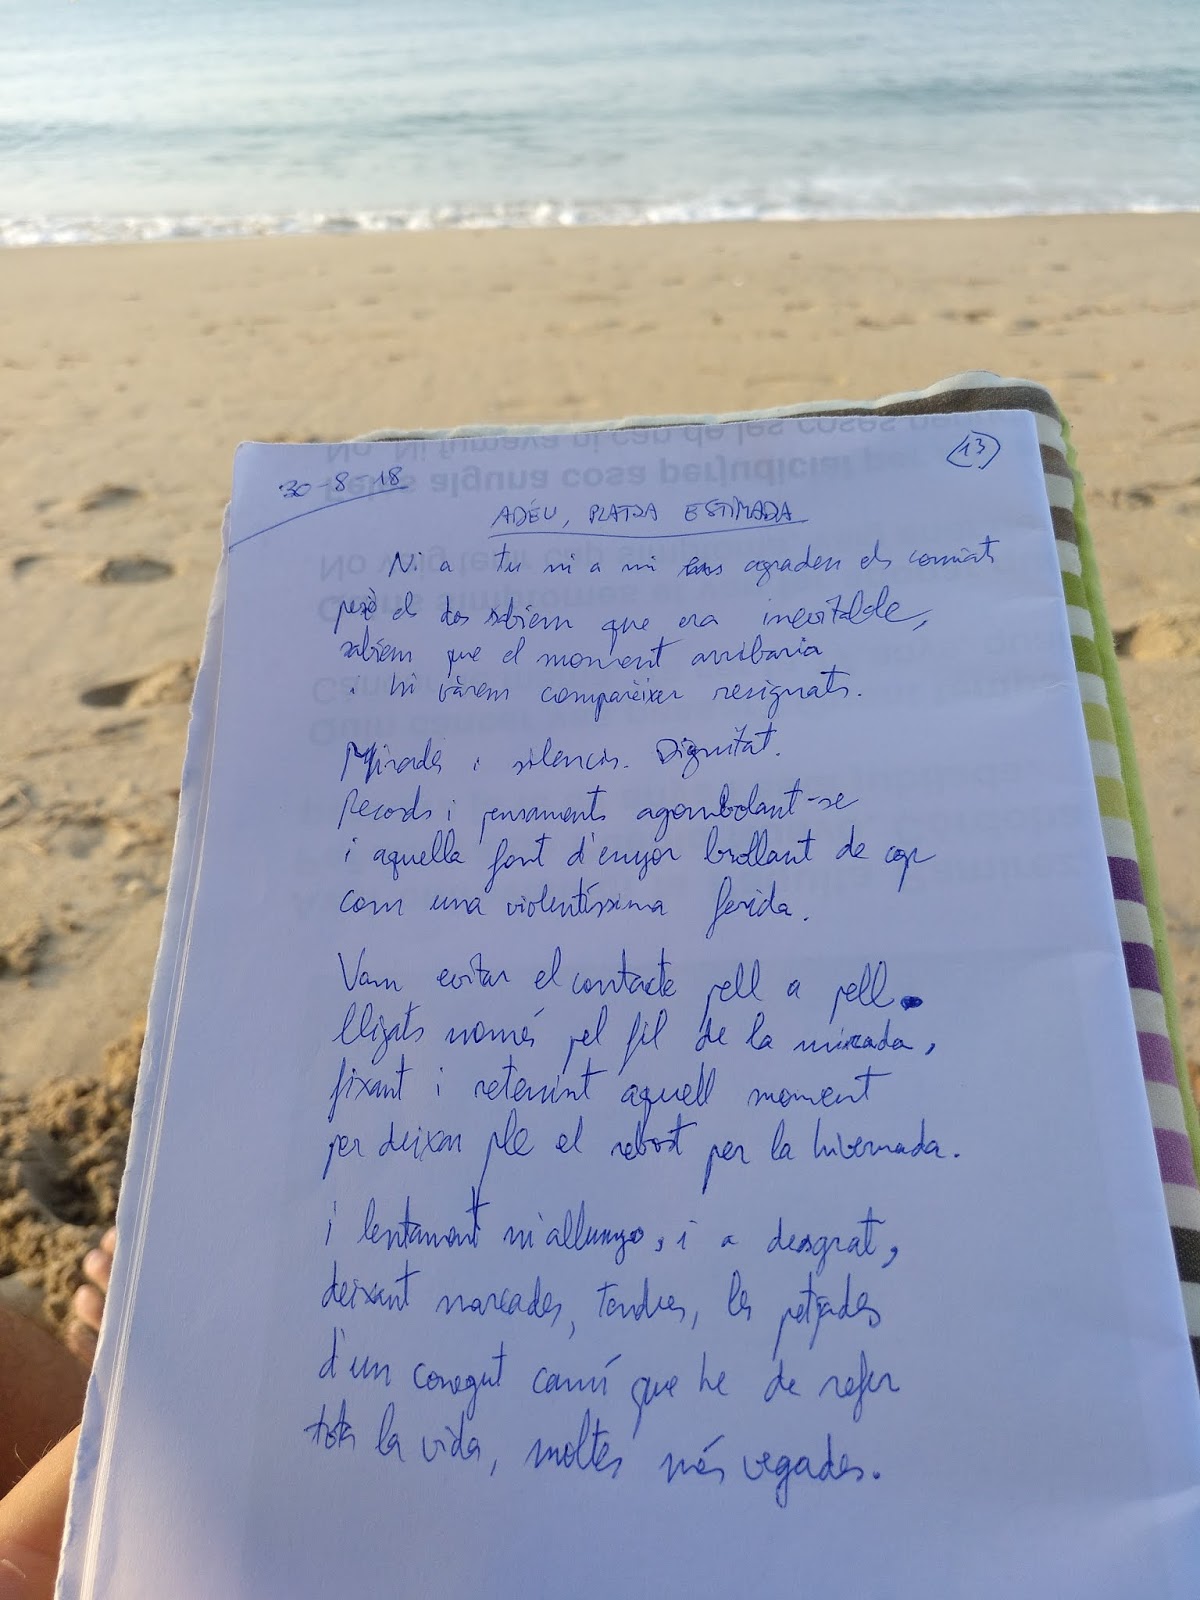 30-8-18
13
ADÉU, PLATJA ESTIMADA
Ni a tu ni a mi ens agraden els comiats
però els dos sabíem que era inevitable,
sabíem que el moment arribaria
i hi vàrem comparèixer resignats.
Mirades i silencis. Dignitat.
Records i pensaments agombolant-se
i aquella font d'enyor brollant de cop
com una violentíssima ferida.
Vam evitar el contacte pell a pell
lligats només pel fil de la mirada,
fixant i retenint aquell moment
per deixar ple el rebost per la hivernada.
i lentament m'allunyo, i a desgrat,
deixant marcades, tendres, les petjades
d'un conegut camí que he de refer
tota la vida, moltes més vegades.